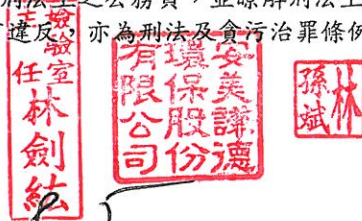 刑法上之公務員，並瞭解刑法上
違反，亦為刑法及貪污治罪條例
檢驗室
主任
林劍紘
安美謙德
環保股份
有限公司
林
孫斌